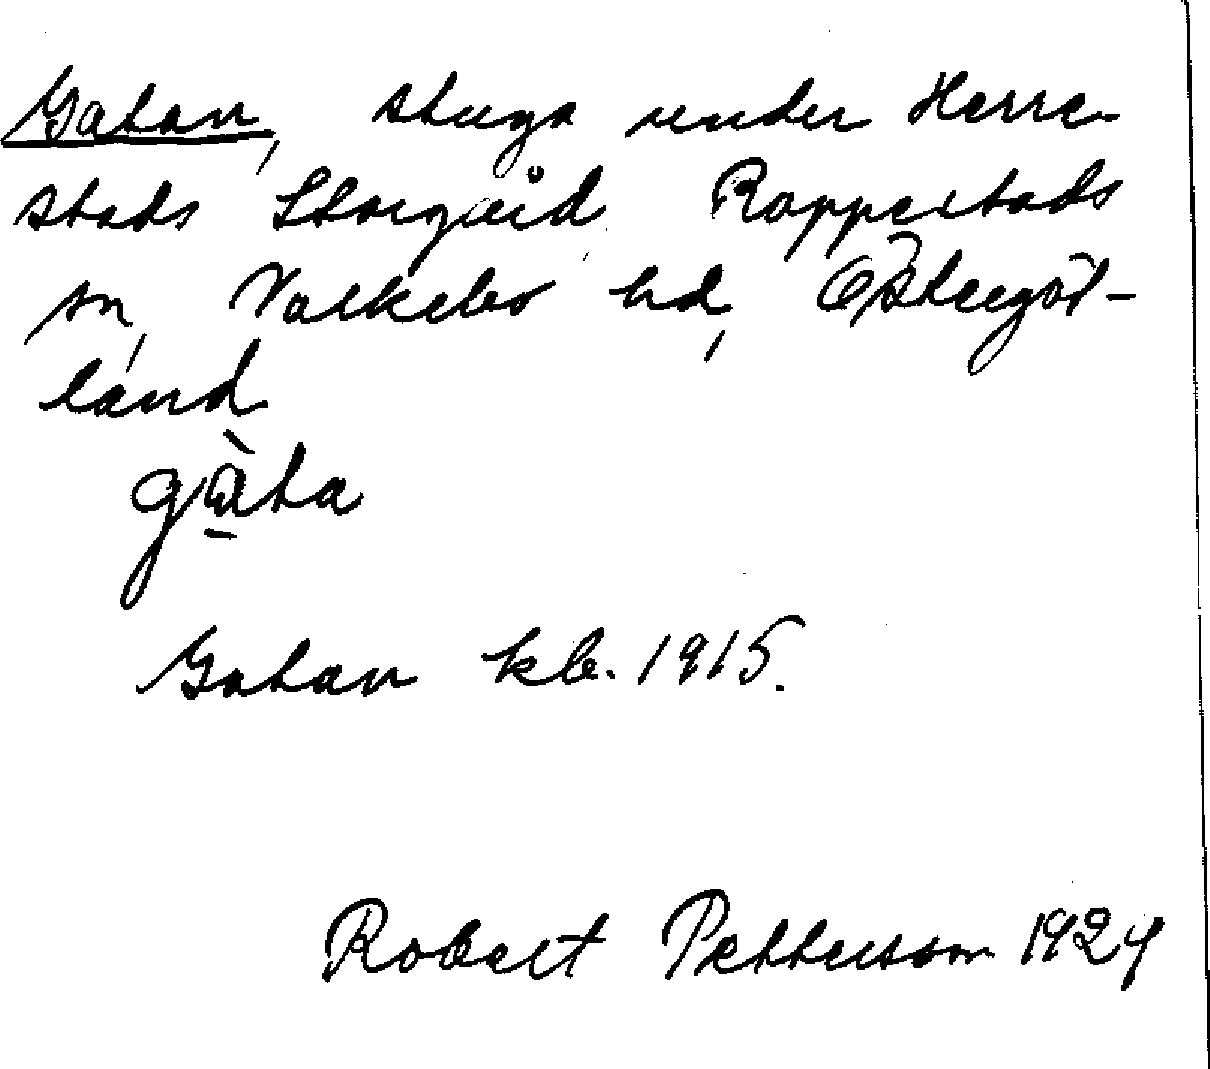 Gatan, stuga under Herre-
stads Storgård, Rappestads
sn, Valkebo hd, Östergöt-
land
gàta
Gatan kb. 1915.
Robert Pettersson 1924